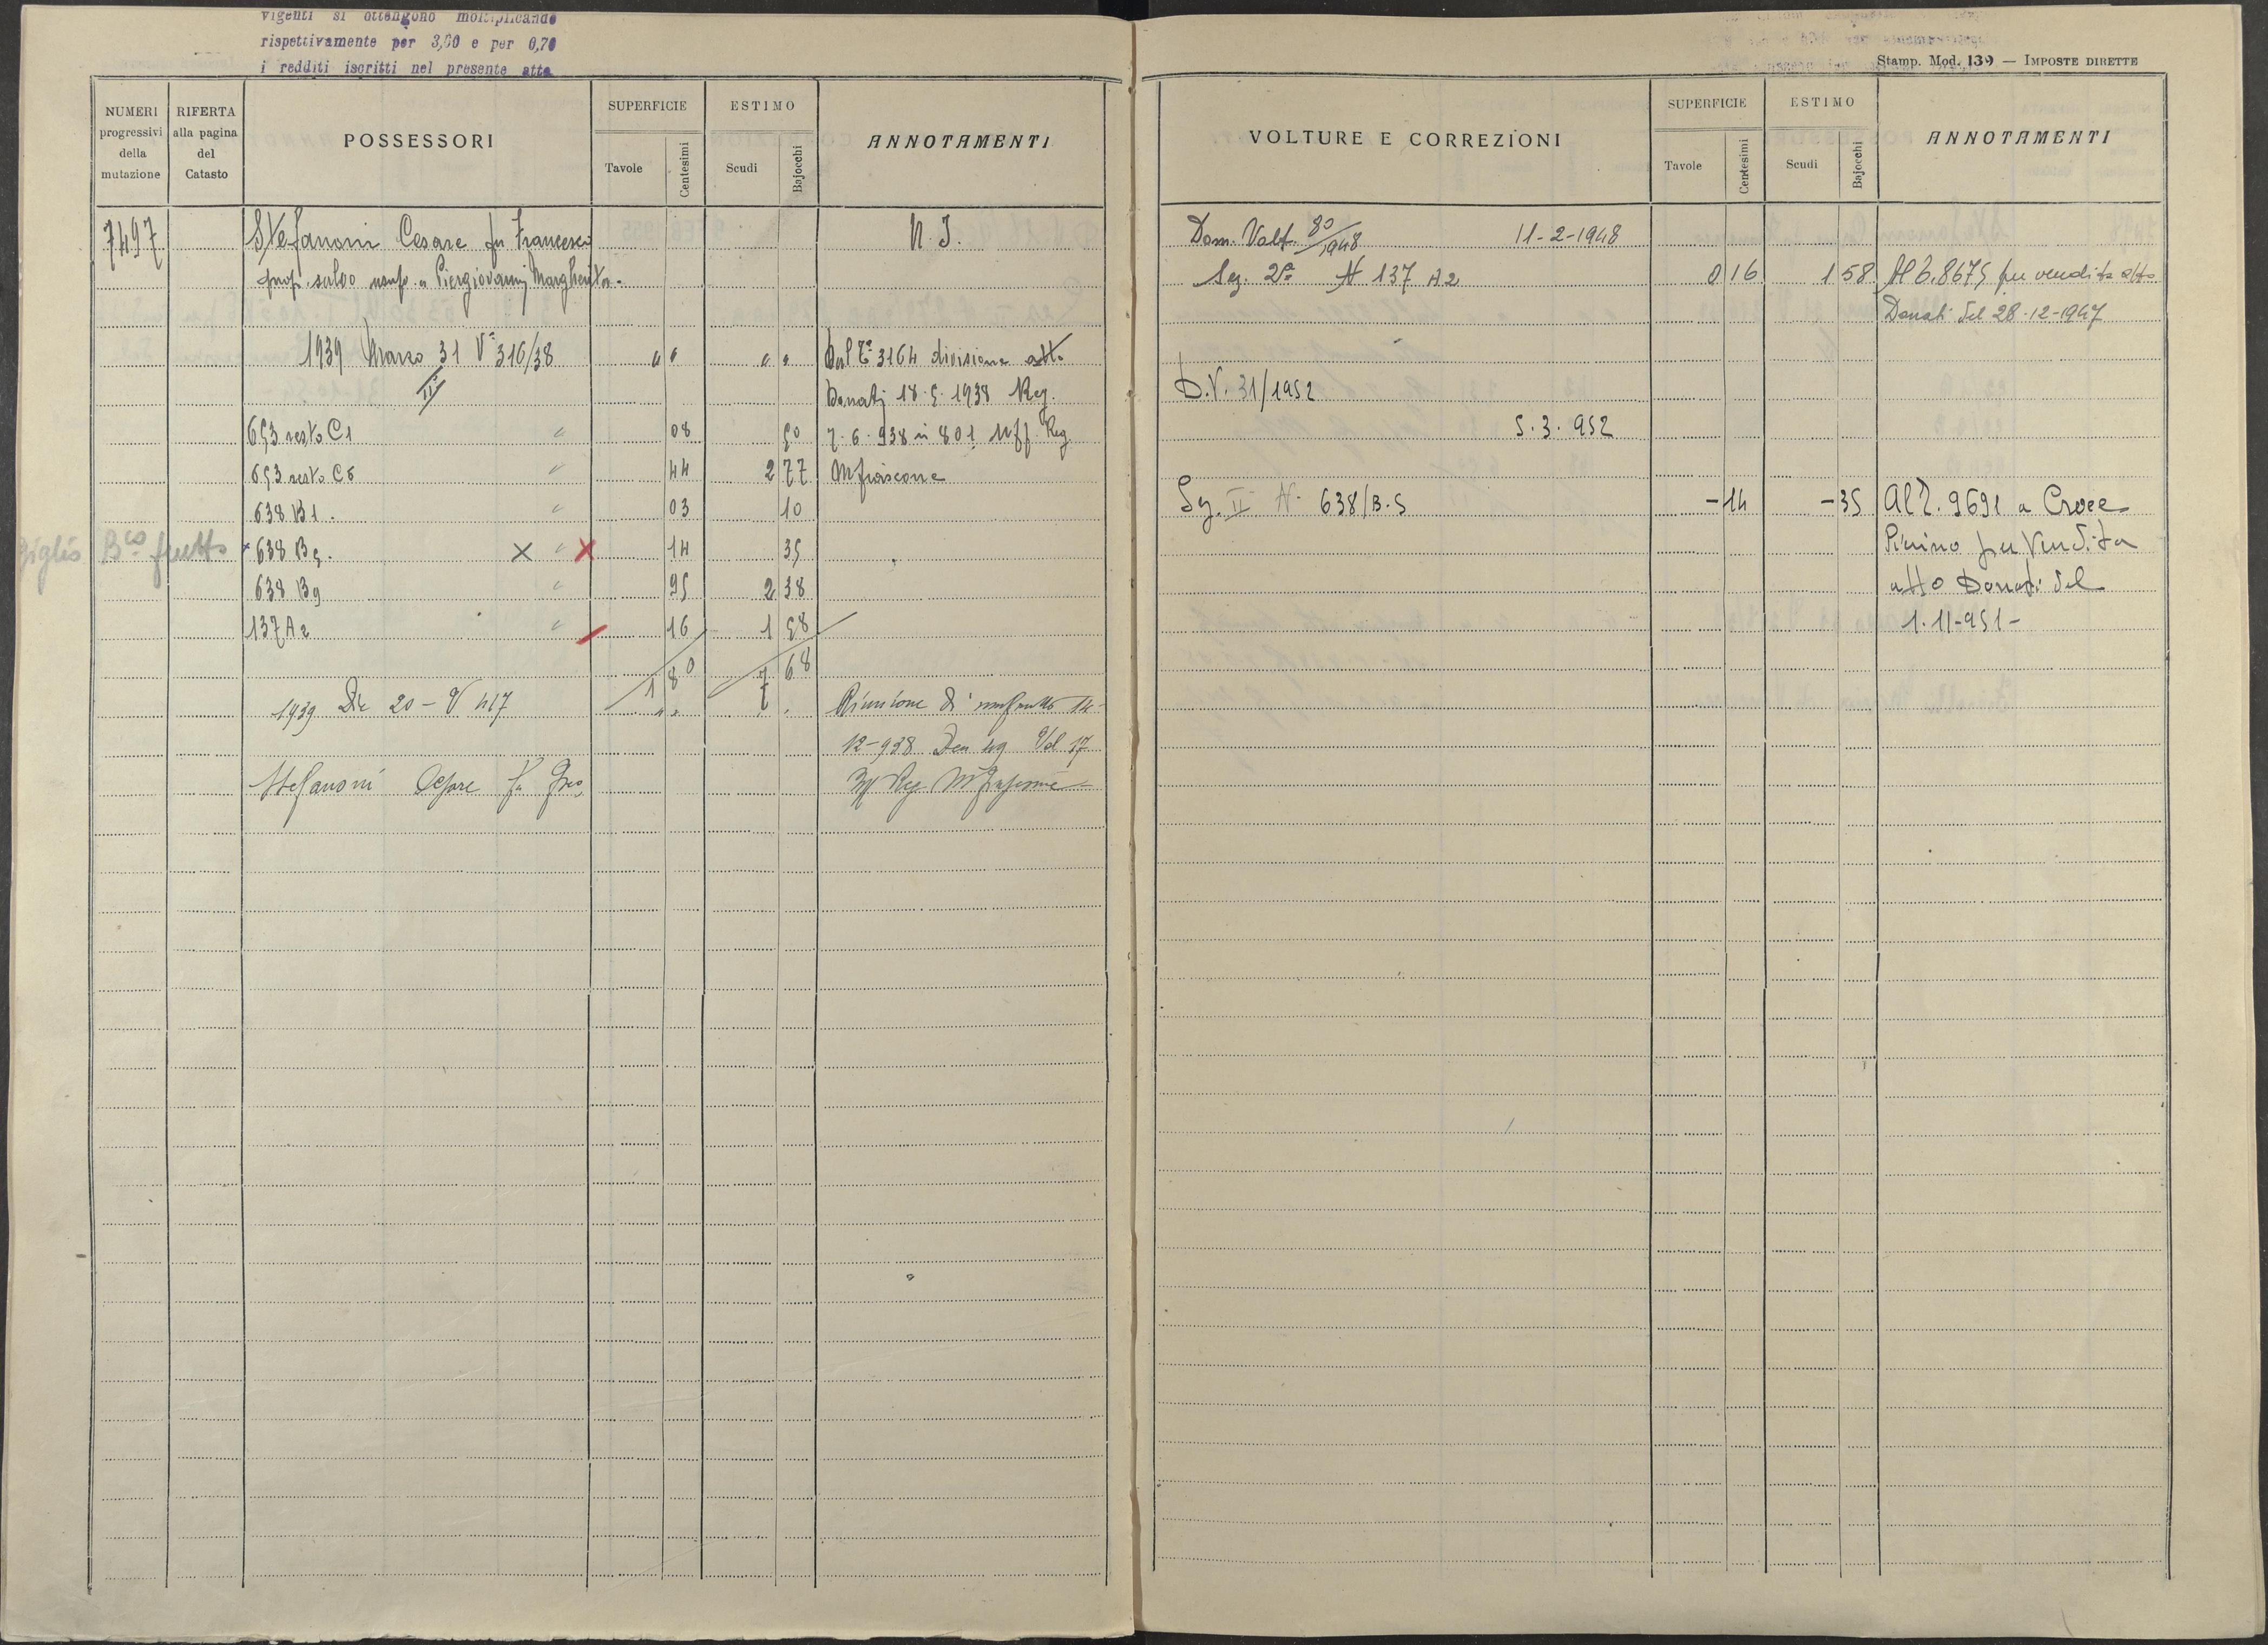 vigenti si ottengono moltiplicando
rispettivamente per 3,00 e per 0,70
i redditi iscritti nel presente atto
NUMERI progressivi della mutazione
RIFERTA alla pagina del Catasto
POSSESSORI
SUPERFICIE
Tavole
Centesimi
ESTIMO
Scudi
Bajocchi
ANNOTAMENTI
7497 Stefanoni Cesare fu Francesco N. I.
prop. salvo usuf. a Piergiovanni Margherita.
1939 Marzo 31 Va 316/38 " " " " Dal 3164 divisione atto
II Donati 18.5.1938 Reg.
653 resto C1 " 08 50 7.6.938 n 801 Uff Reg
653 resto C6 " 44 2 77 Mfiascone
638 B1. " 03 10
Giglio Bco frutto 638 B5. X " X 14 35
638 B9 " 95 2 38
137 A2 " 16 1 58
1 80 7 68
1939 Dic 20 - V 417 " " " " Riunione di usufrutto 14-
12-938 Den 49 Vol 17
Stefanoni Cesare fu Fco Uff Reg Mfiascone
Stamp. Mod. 139 — IMPOSTE DIRETTE
VOLTURE E CORREZIONI
SUPERFICIE
Tavole
Centesimi
ESTIMO
Scudi
Bajocchi
ANNOTAMENTI
Dom. Volt. 80/1948 11-2-1948
Sez. 2a N 137 A2 0 16 1 58 Al 8675 per vendita atto
Donati del 28-12-1947
D.V. 31/1952
5.3.952
Sez. II N. 638/B.5 -14 -35 Al 9691 a Croce
Pinino per Vendita
atto Donati del
1.11-951-